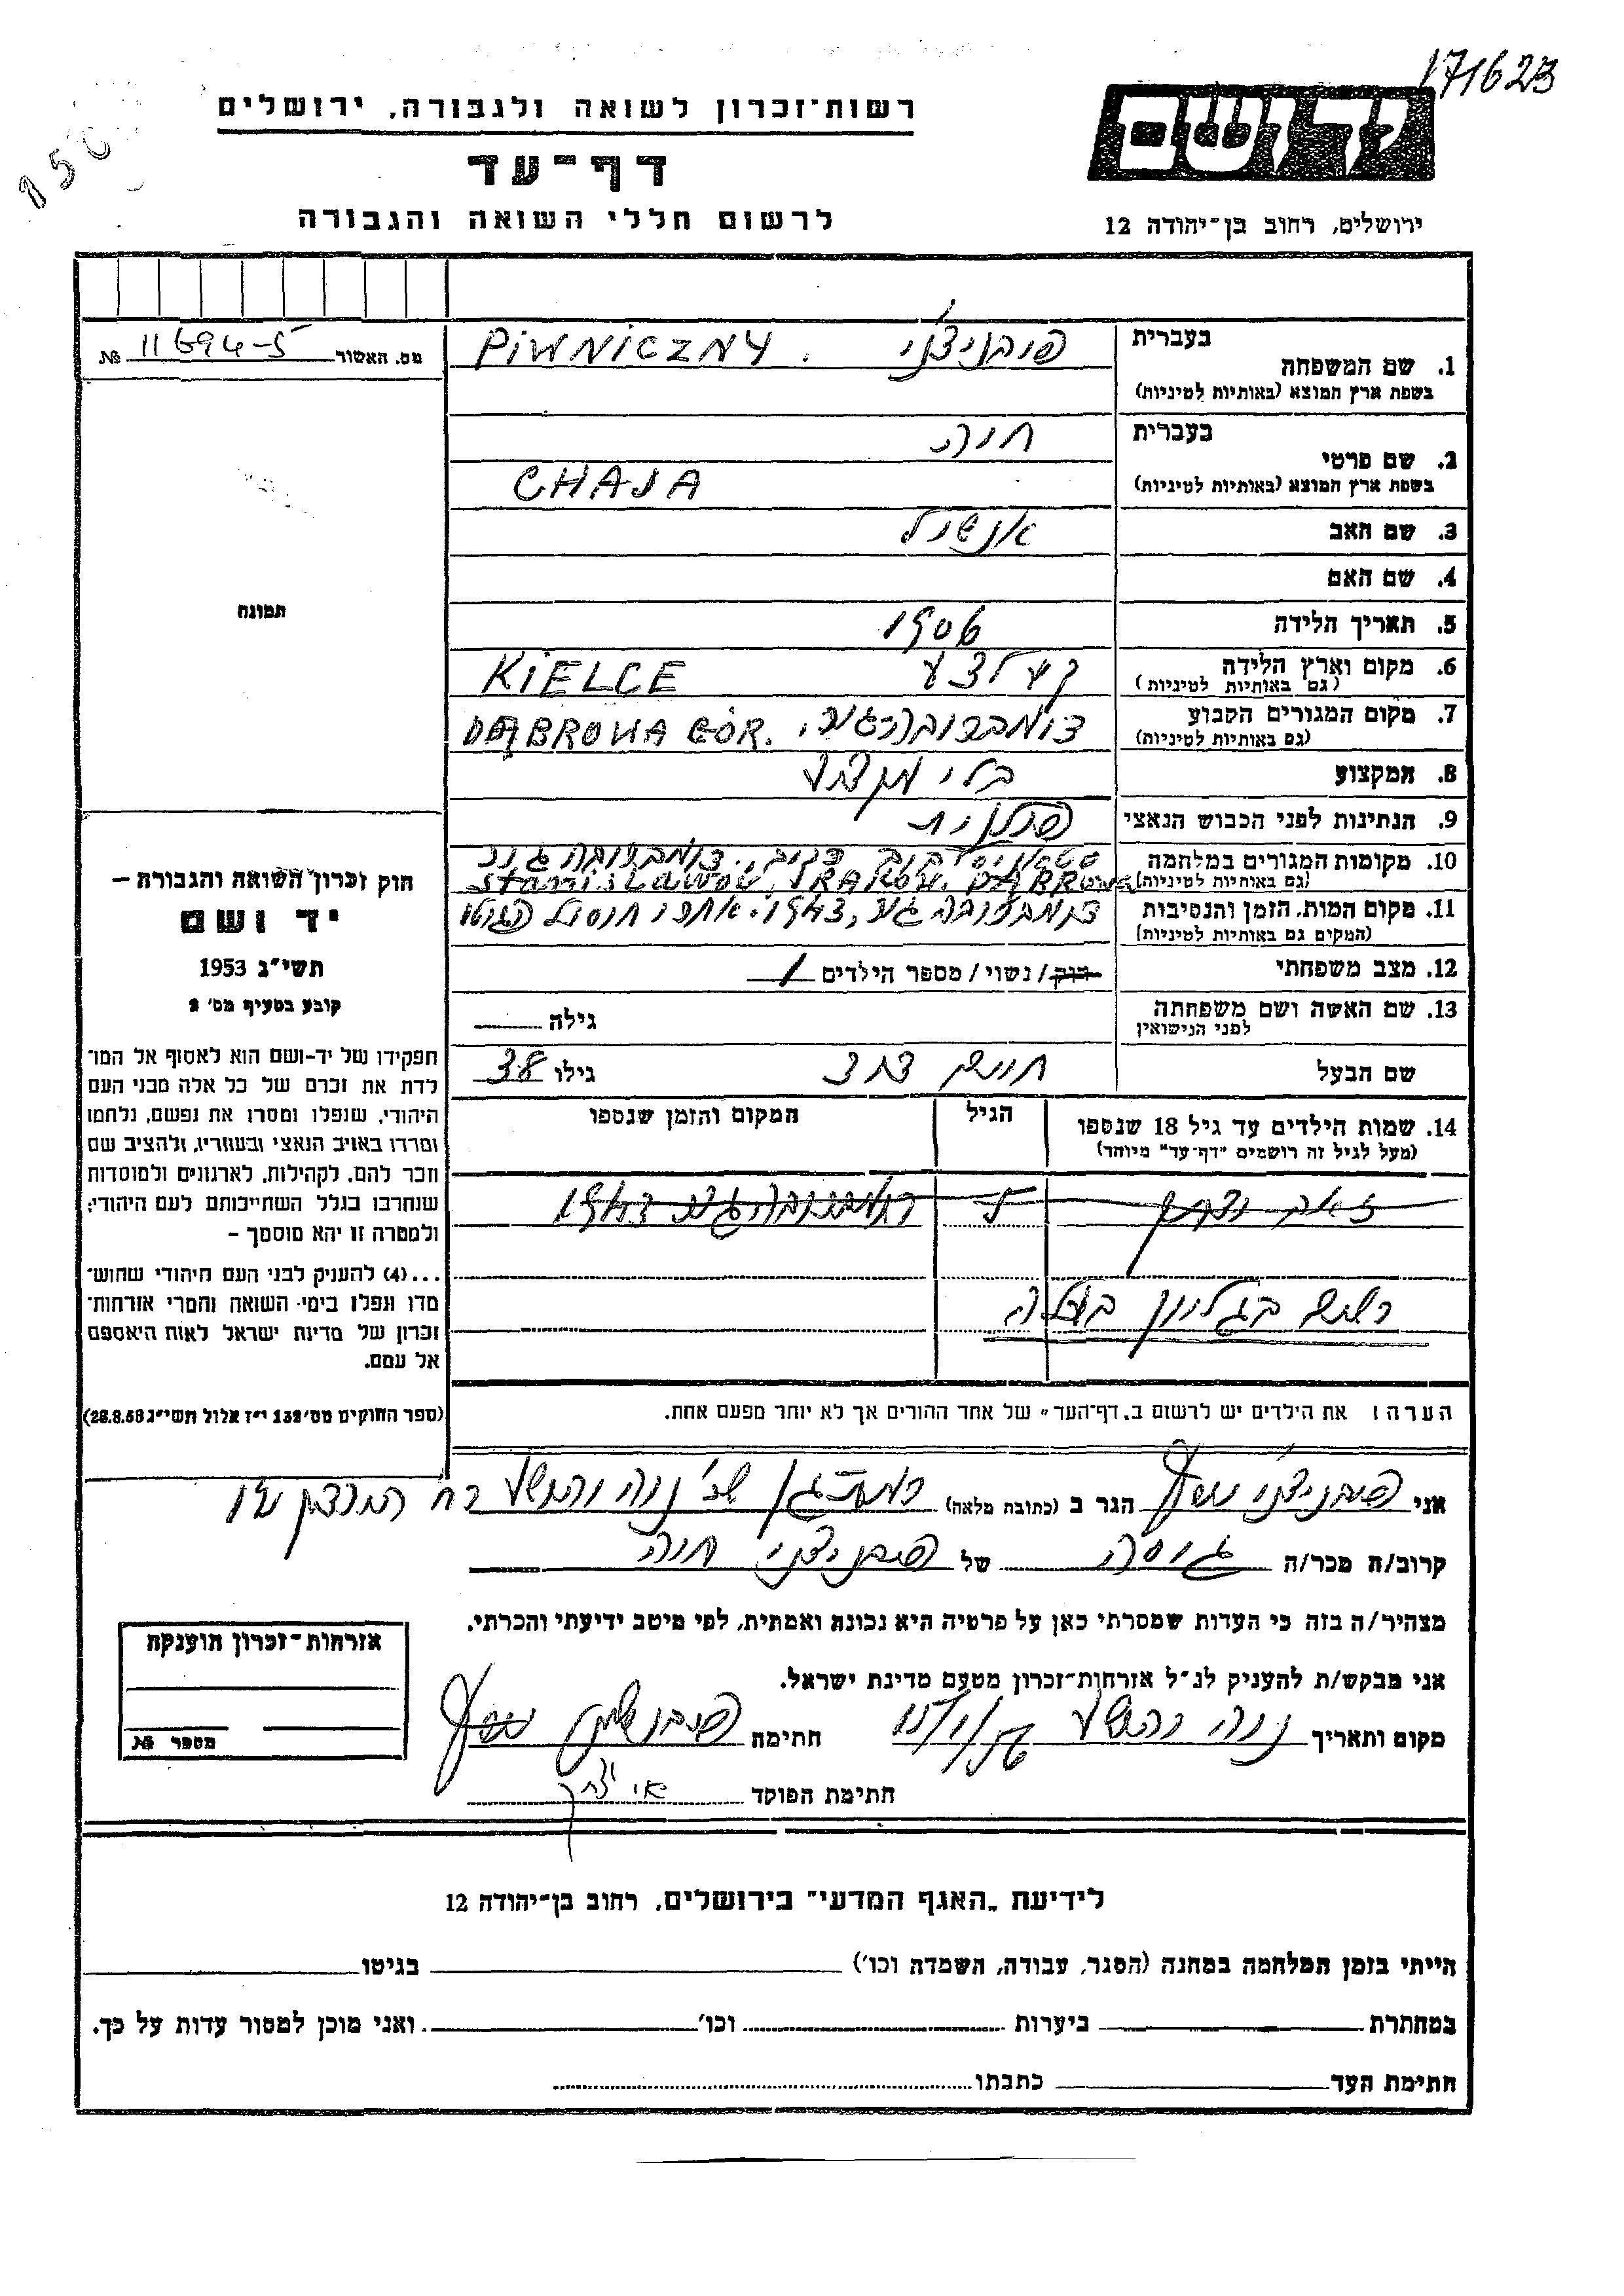 171623
רשות־זכרון לשואה ולגבורה, ירושלים
יד ושם
דף־עד
לרשום חללי השואה והגבורה
ירושלים, רחוב בן־יהודה 12
מס. האשור 11694-5 №
בעברית
1. שם המשפחה
בשפת ארץ המוצא (באותיות לטיניות)
פיבניצ'ני PIWNICZNY
בעברית
2. שם פרטי
בשפת ארץ המוצא (באותיות לטיניות)
חיה
CHAJA
3. שם האב
אנשיל
4. שם האם
5. תאריך הלידה
1906
6. מקום וארץ הלידה
(גם באותיות לטיניות)
קילצע KIELCE
7. מקום המגורים הקבוע
(גם באותיות לטיניות)
DĄBROWA GÓR.
8. המקצוע
בלי מקצוע
9. הנתינות לפני הכבוש הנאצי
פולנית
10. מקומות המגורים במלחמה
(גם באותיות לטיניות)
Stanisławów, KRAKÓW, DĄBROWA
11. מקום המות, הזמן והנסיבות
(המקום גם באותיות לטיניות)
1943, אחרי חיסול הגטו
12. מצב משפחתי
רוק / נשוי / מספר הילדים 1
13. שם האשה ושם משפחתה
לפני הנישואין
גילה
שם הבעל
חיים דוד
גילו 38
14. שמות הילדים עד גיל 18 שנספו
(מעל לגיל זה רושמים "דף־עד" מיוחד)
הגיל
המקום והזמן שנספו
1943
רשום בגליון בעלה
הערה: את הילדים יש לרשום ב„דף־העד" של אחד ההורים אך לא יותר מפעם אחת.
תמונה
חוק זכרון השואה והגבורה –
יד ושם
תשי"ג 1953
קובע בסעיף מס' 2
תפקידו של יד-ושם הוא לאסוף אל המו־
לדת את זכרם של כל אלה מבני העם
היהודי, שנפלו ומסרו את נפשם, נלחמו
ומרדו באויב הנאצי ובעוזריו, ולהציב שם
וזכר להם, לקהילות, לארגונים ולמוסדות
שנחרבו בגלל השתייכותם לעם היהודי;
ולמטרה זו יהא מוסמך –
...(4) להעניק לבני העם היהודי שהוש־
מדו ונפלו בימי השואה והמרי אזרחות־
זכרון של מדינת ישראל לאות היאספם
אל עמם.
(ספר החוקים מס' 132 י"ז אלול תשי"ג 28.8.53)
אני פיבניצ'ני הגר ב (כתובת מלאה)
קרוב/ה מכר/ה גיסה של פיבניצ'ני חיה
מצהיר/ה בזה כי העדות שמסרתי כאן על פרטיה היא נכונה ואמתית, לפי מיטב ידיעתי והכרתי.
אני מבקש/ת להעניק לנ"ל אזרחות־זכרון מטעם מדינת ישראל.
מקום ותאריך נוה יהושע חתימה
חתימת הפוקד
אזרחות־זכרון הוענקה
מספר №
לידיעת „האגף המדעי" בירושלים, רחוב בן־יהודה 12
הייתי בזמן המלחמה במחנה (הסגר, עבודה, השמדה וכו') בגיטו
במחתרת ביערות וכו' ואני מוכן למסור עדות על כך.
חתימת העד כתבתו